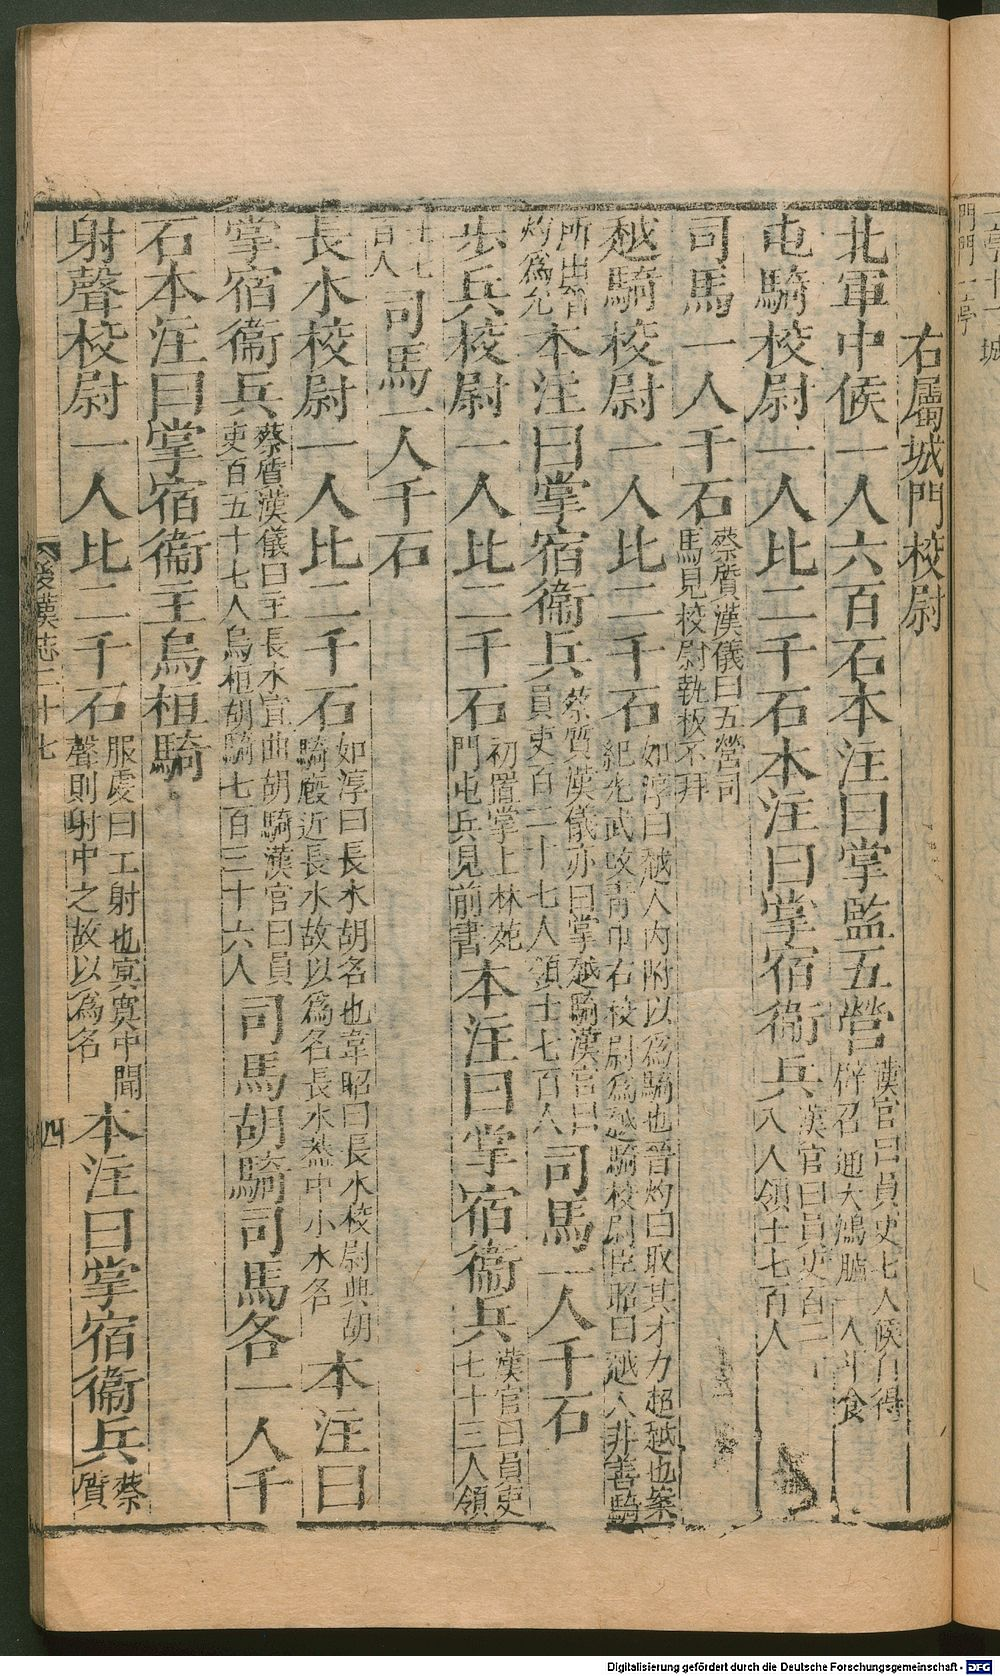 右屬城門校尉
北軍中候一人六百石本注曰掌監五營漢官曰員吏七人候自得辟召通大鴻臚一人斗食
屯騎校尉一人比二千石本注曰掌宿衞兵漢官曰員吏百二十八人領士七百人
司馬一人千石蔡質漢儀曰五營司馬見校尉執板不拜
越騎校尉一人比二千石如淳曰越人内附以為騎也晉灼曰取其才力超越也案紀光武改青巾右校尉為越騎校尉臣昭曰越人非善騎
所出晉灼為允本注曰掌宿衞兵蔡質漢儀亦曰掌越騎漢官曰員吏百二十七人領士七百人司馬一人千石
步兵校尉一人比二千石初置掌上林苑門屯兵見前書本注曰掌宿衞兵漢官曰員吏七十三人領
士七百人司馬一人千石
長水校尉一人比二千石如淳曰長水胡名也韋昭曰長水校尉典胡騎廐近長水故以為名長水蓋中小水名本注曰
掌宿衞兵蔡質漢儀曰主長水宣曲胡騎漢官曰員吏百五十七人烏桓胡騎七百三十六人司馬胡騎司馬各一人千
石本注曰掌宿衞主烏桓騎
射聲校尉一人比二千石服虔曰工射也冥寞中聞聲則射中之故以為名本注曰掌宿衞兵蔡質
後漢志二十七
四
門門一亭
Digitalisierung gefördert durch die Deutsche Forschungsgemeinschaft - DFG